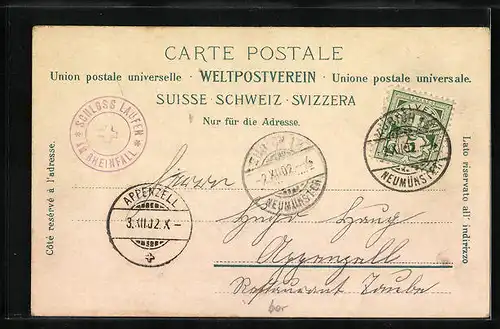 CARTE POSTALE
Union postale universelle · WELTPOSTVEREIN · Unione postale universale.
SUISSE · SCHWEIZ · SVIZZERA
Nur für die Adresse.
Côté réservé à l'adresse.
Lato riservato all' indirizzo
SCHLOSS LAUFEN
RHEINFALL
APPENZELL
3.XII.02.X-
NEUMÜNSTER
2.XII.02
NEUMÜNSTER
Herrn
Hugo Haug
Appenzell
Restaurant Taube